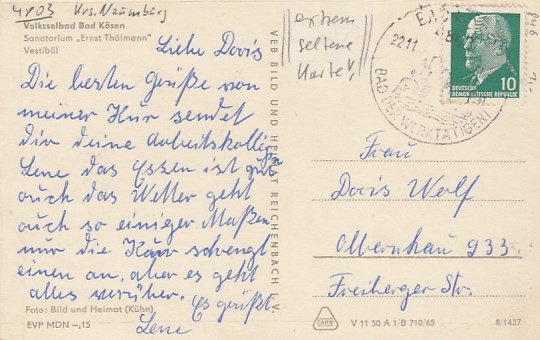 4803 Krs. Naumburg
Volkssolbad Bad Kösen
Sanatorium „Ernst Thälmann"
Vestibül
Liebe Doris
Die besten Grüße von
meiner Kur sendet
dir deine Arbeitskollegin
Lene das Essen ist gut
auch das Wetter geht
auch so einiger Maßen
nur die Kur strengt
einen an, aber es geht
alles vorüber.
Es grüßt
Lene
Foto: Bild und Heimat (Kühn)
EVP MDN –,15
VEB BILD UND HEIMAT REICHENBACH i. V.
extrem
seltene
Karte!
22.11
BAD DER WERKTÄTIGEN
10
DEUTSCHE
DEMOKRATISCHE REPUBLIK
Frau
Doris Wolf
Olbernhau 933
Freiberger Str.
V 11 50 A 1/B 710/65
8/1437